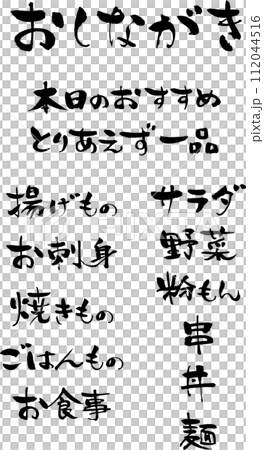 おしながき
本日のおすすめ
とりあえず一品
揚げもの
お刺身
焼きもの
ごはんもの
お食事
サラダ
野菜
粉もん
串
丼
麺
112044516